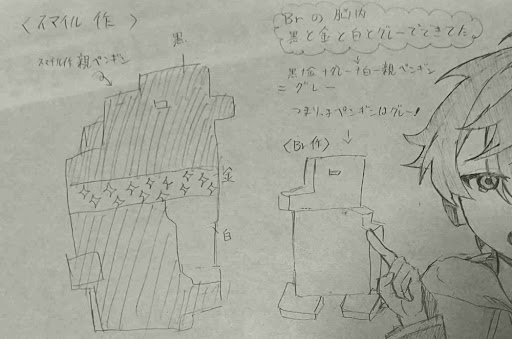 〈スマイル 作〉
スマイル作 親ペンギン
黒
金
白
Brの脳内
黒と金と白とグレーでできてた
↓
黒+金+グレー+白=親ペンギン
= グレー
つまり、子ペンギンはグレー!
↓
〈Br 作〉